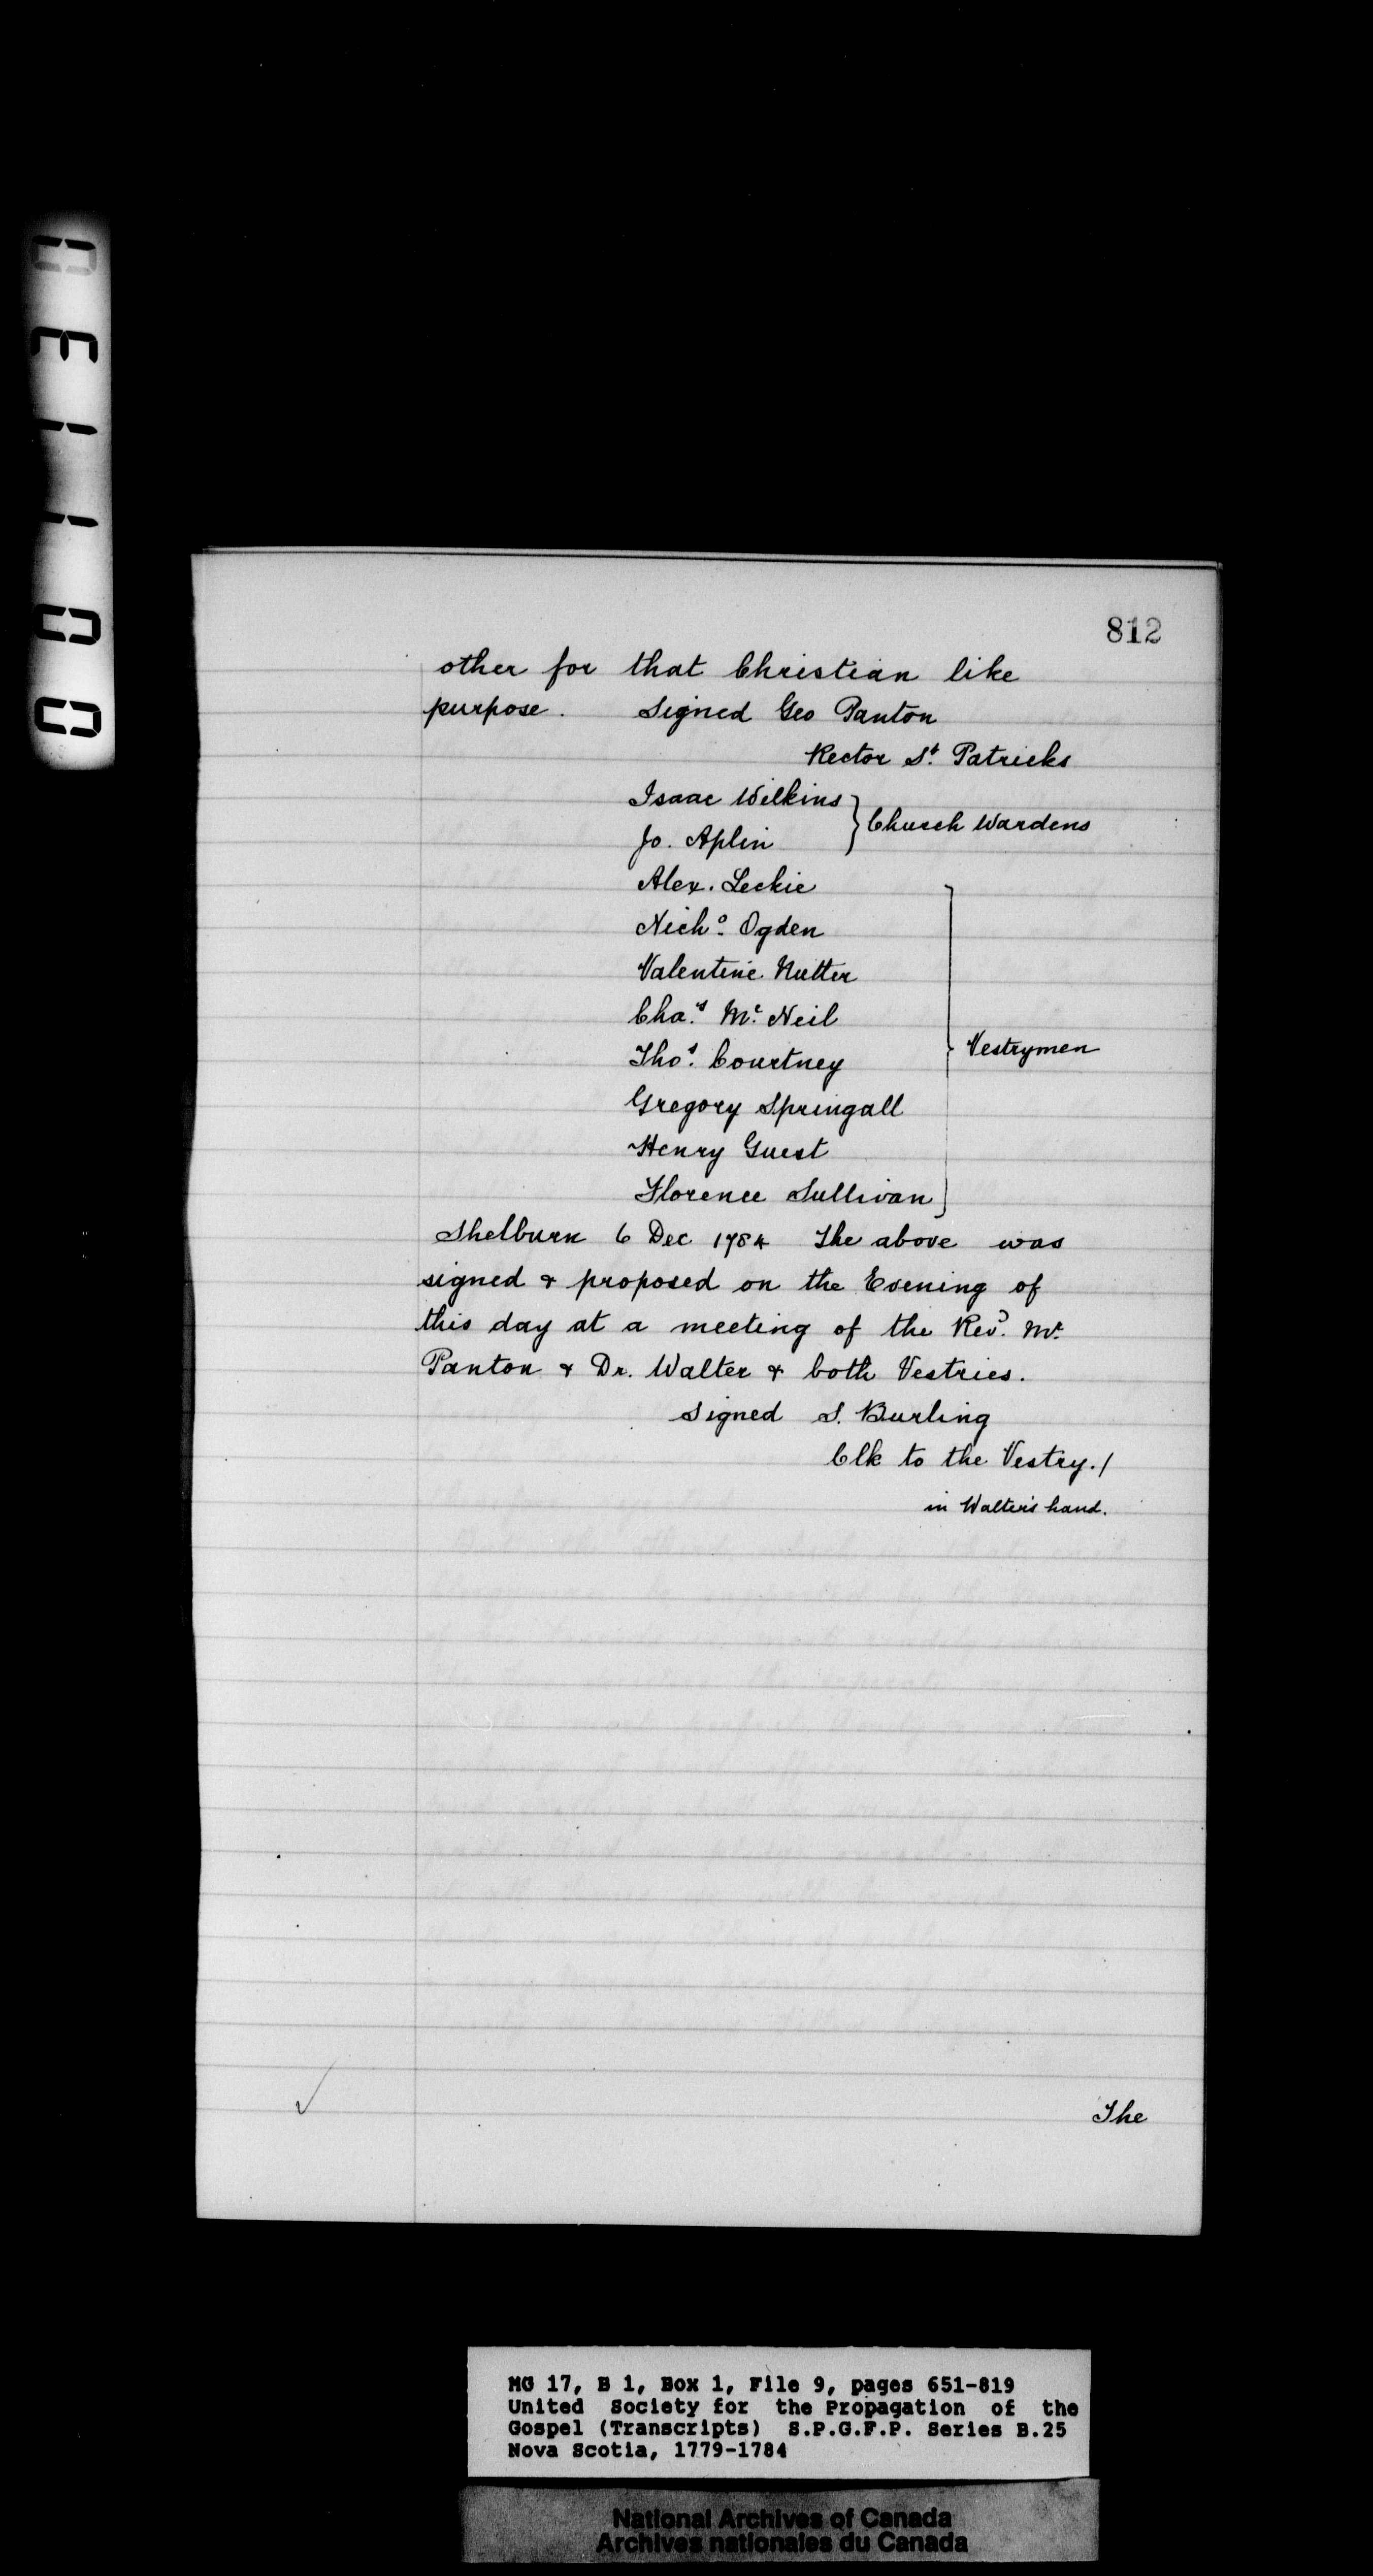 812
other for that Christian like
purpose. Signed Geo Panton
Rector St. Patricks
Isaac Wilkins
Jo. Aplin
Church Wardens
Alex. Leckie
Nicho. Ogden
Valentine Nutter
Chas. Mc. Neil
Thos. Courtney
Gregory Springall
Henry Guest
Florence Sullivan
Vestrymen
Shelburn 6 Dec 1784 The above was
signed & proposed on the Evening of
this day at a meeting of the Revd. Mr.
Panton & Dr. Walter & both Vestries.
Signed S. Burling
Clk to the Vestry./
in Walter's hand.
The
MG 17, B 1, Box 1, File 9, pages 651-819
United Society for the Propagation of the
Gospel (Transcripts) S.P.G.F.P. Series B.25
Nova Scotia, 1779-1784
National Archives of Canada
Archives nationales du Canada